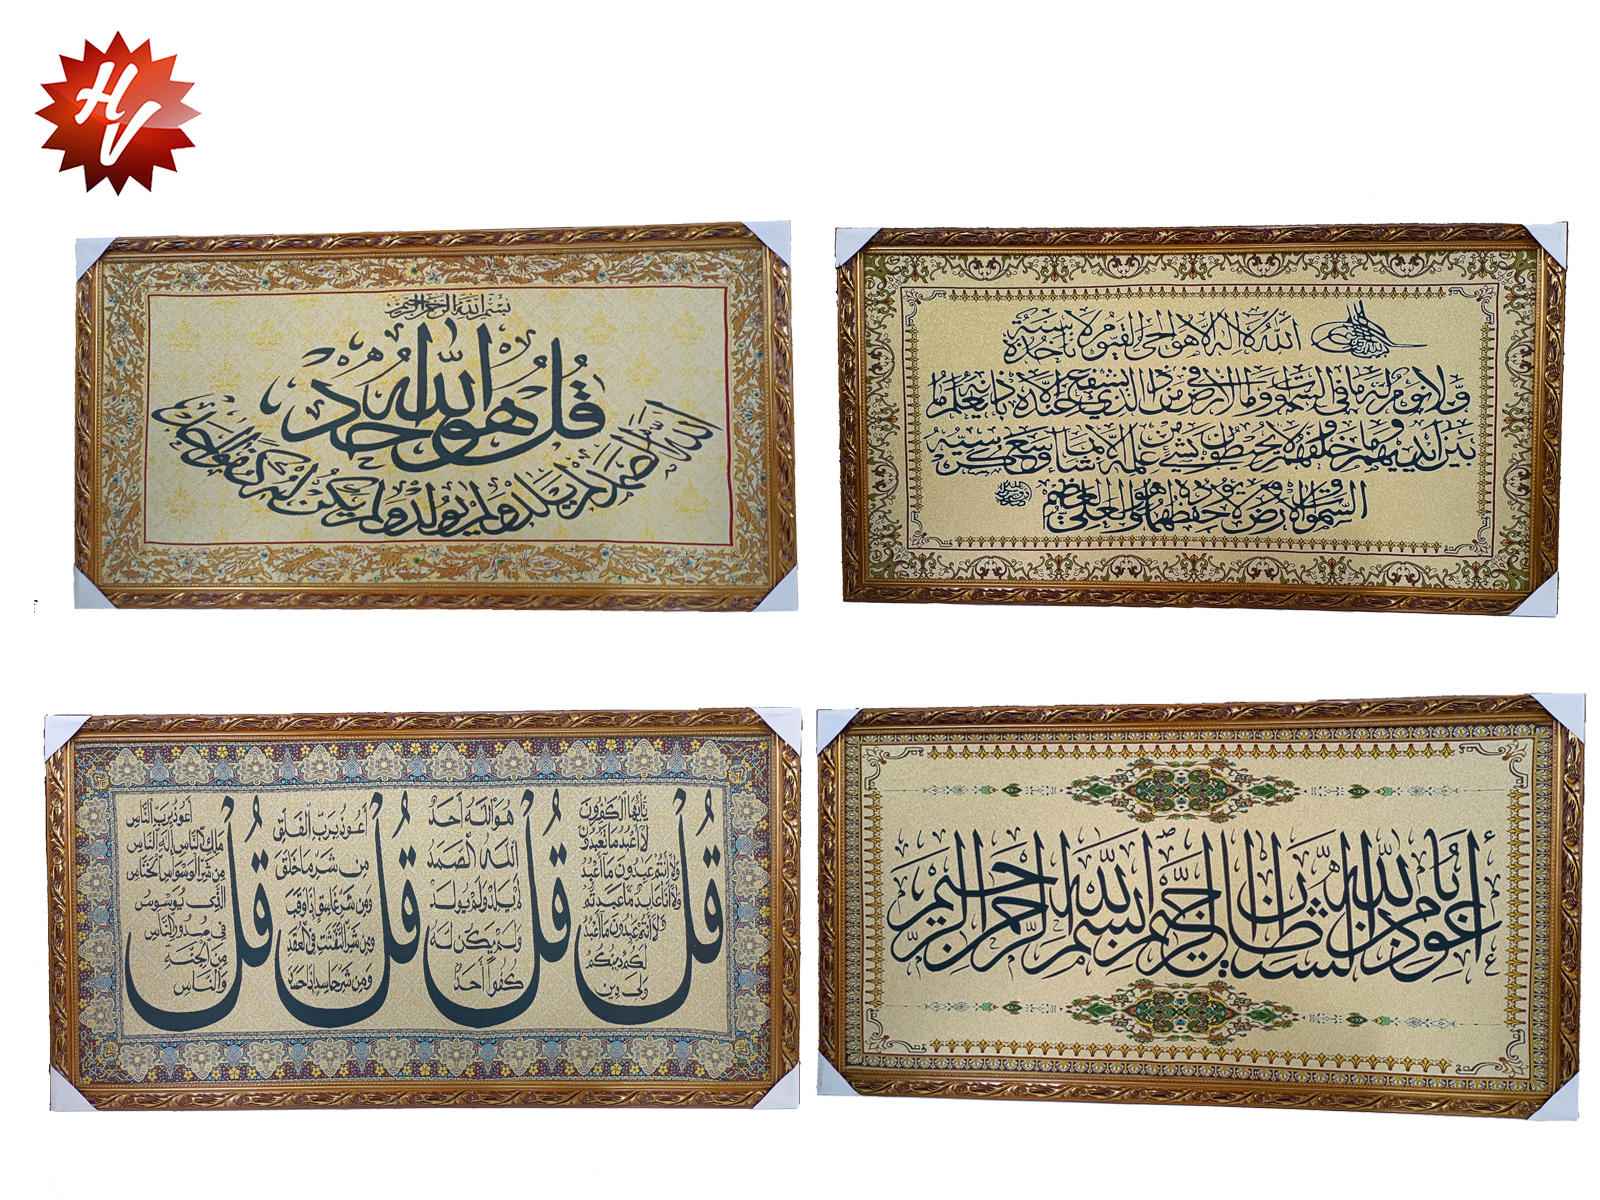 HV
بسم الله الرحمن الرحيم
قُلْ هُوَ اللَّهُ أَحَدٌ
الله الصمد لم يلد ولم يولد ولم يكن له كفوا احد
الله لا اله الا هو الحي القيوم لا تأخذه سنة
ولا نوم له ما في السموات وما في الارض من ذا الذي يشفع عنده الا باذنه يعلم ما
بين ايديهم وما خلفهم ولا يحيطون بشيء من علمه الا بما شاء وسع كرسيه
السموات والارض ولا يؤده حفظهما وهو العلي العظيم
قُلْ
يأيها الكفرون
لا أعبد ما تعبدون
ولا أنتم عبدون ما أعبد
ولا أنا عابد ما عبدتم
ولا أنتم عبدون ما أعبد
لكم دينكم
ولي دين
قُلْ
هو الله أحد
الله الصمد
لم يلد ولم يولد
ولم يكن له
كفوا أحد
قُلْ
أعوذ برب الفلق
من شر ما خلق
ومن شر غاسق إذا وقب
ومن شر النفثت في العقد
ومن شر حاسد إذا حسد
قُلْ
أعوذ برب الناس
ملك الناس إله الناس
من شر الوسواس الخناس
الذي يوسوس
في صدور الناس
من الجنة
والناس
أعوذ بالله من الشيطان الرجيم بسم الله الرحمن الرحيم